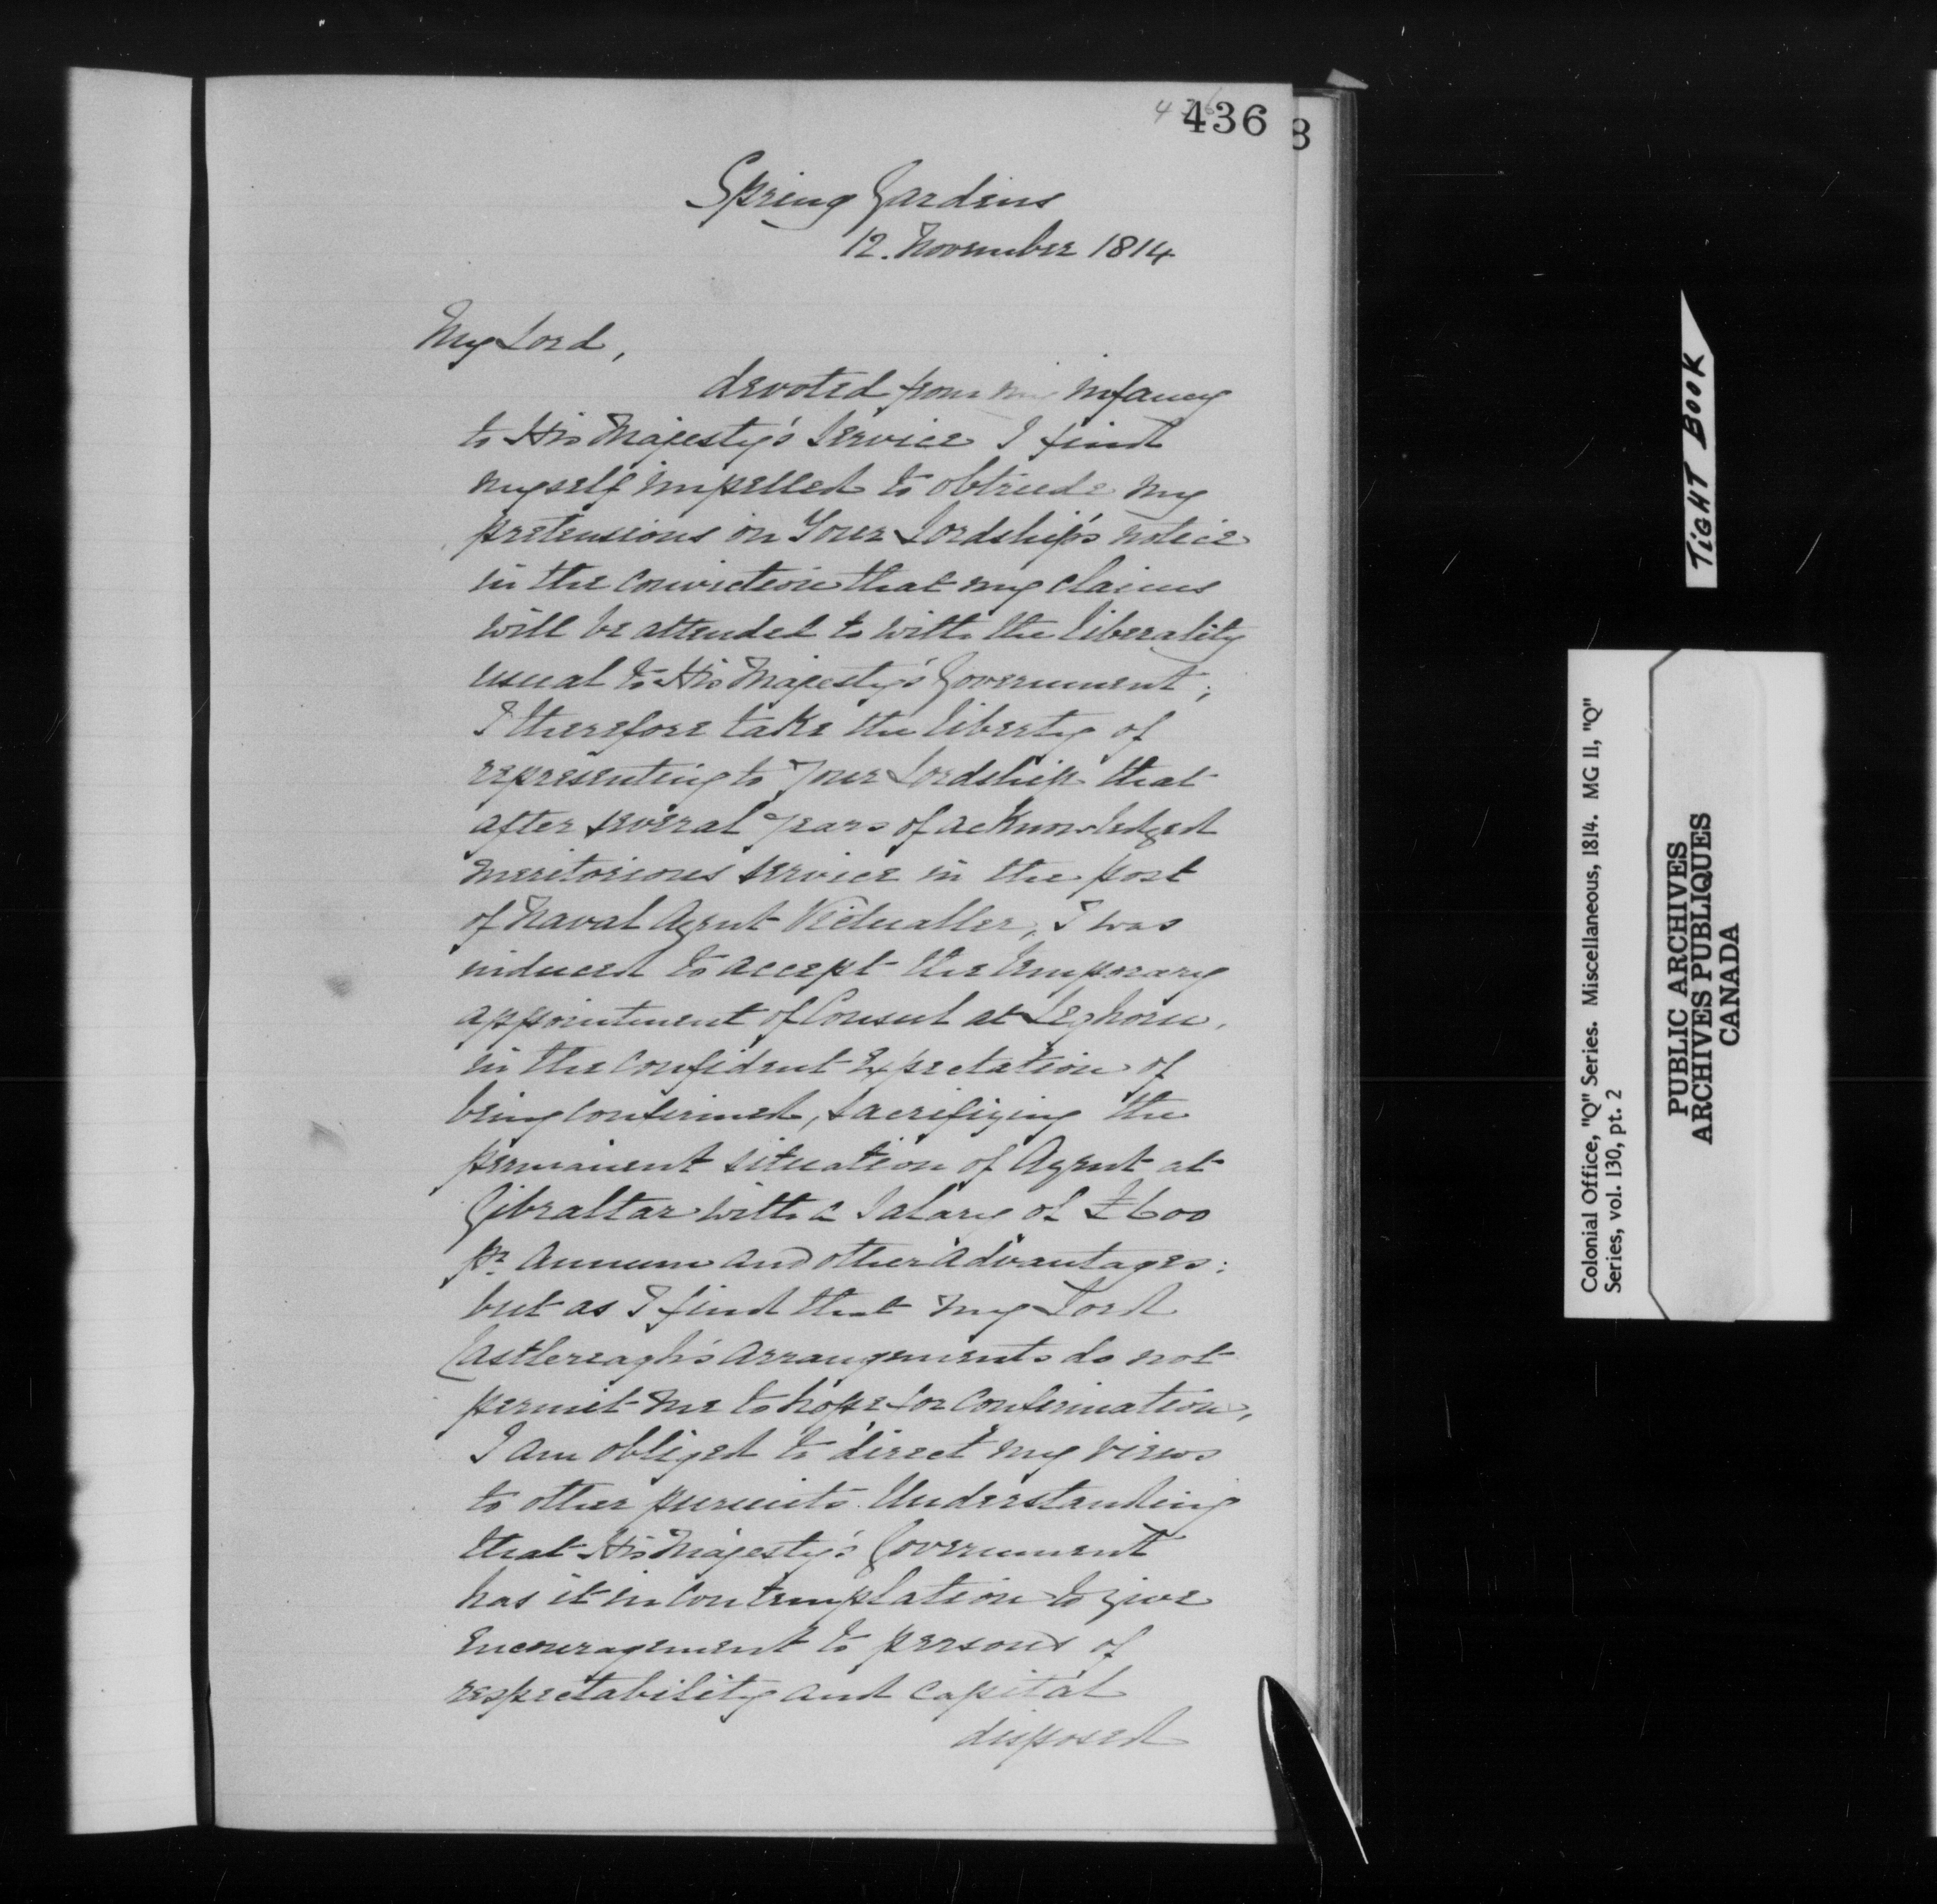 436
436
8
Spring Gardens
12. November 1814
My Lord,
devoted from my infancy
to His Majesty's Service I find
myself impelled to obtrude my
pretensions on Your Lordship's notice
in the conviction that my claims
will be attended to with the liberality
usual to His Majesty's Government;
I therefore take the liberty of
representing to Your Lordship that
after several years of acknowledged
meritorious service in the post
of Naval Agent Victualler, I was
induced to accept the temporary
appointment of Consul at Leghorn,
in the confident expectation of
being confirmed, sacrifizing the
permanent situation of Agent at
Gibraltar with a Salary of £600
pr. annum and other advantages:
but as I find that my Lord
Castlereagh's arrangements do not
permit me to hope for confirmation,
I am obliged to direct my views
to other pursuits. Understanding
that His Majesty's Government
has it in contemplation to give
encouragement to persons of
respectability and capital
disposed
TIGHT BOOK
Colonial Office, "Q" Series. Miscellaneous, 1814. MG 11, "Q"
Series, vol. 130, pt. 2
PUBLIC ARCHIVES
ARCHIVES PUBLIQUES
CANADA